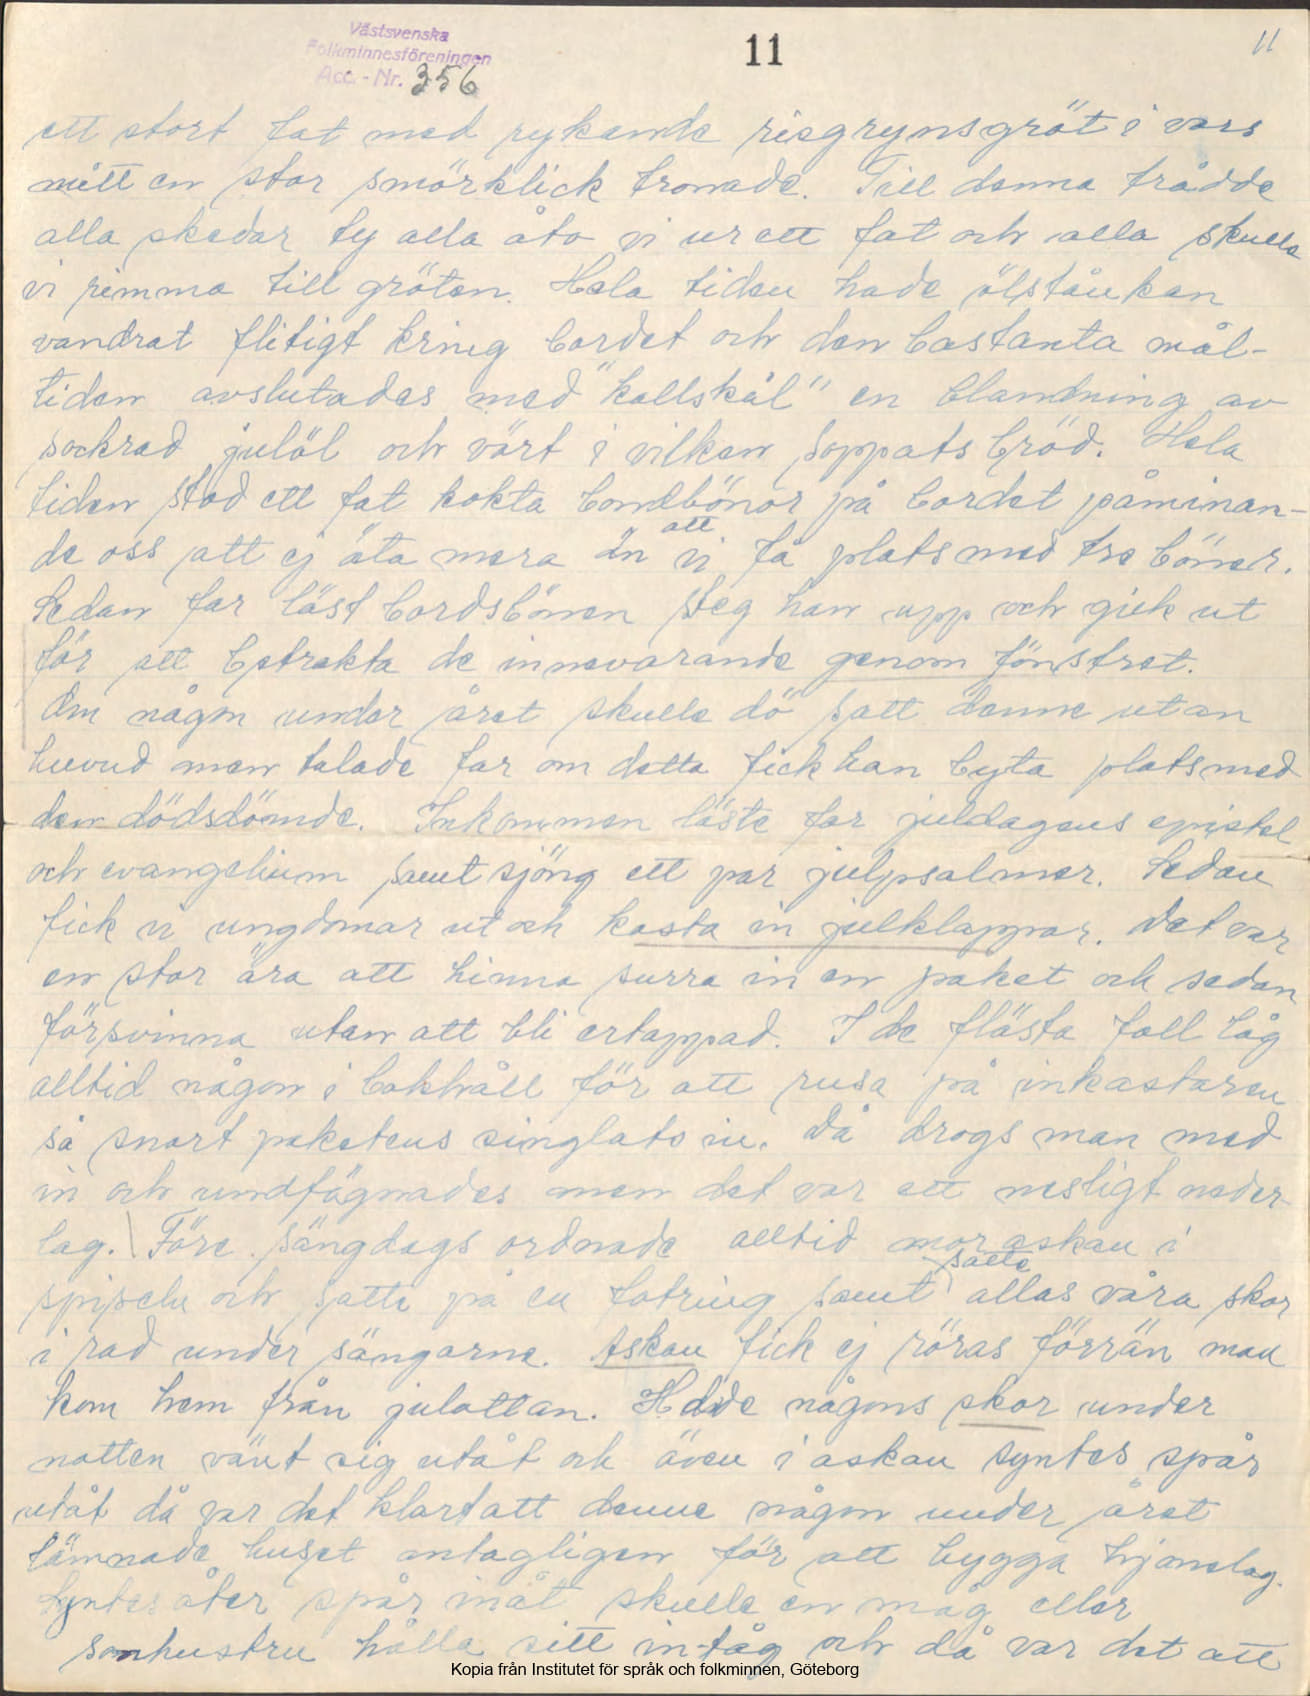 Västsvenska
Folkminnesföreningen
Acc. - Nr. 356
11
11
ett stort fat med rykande risgrynsgröt i vars
mitt en stor smörklick tronade. Till denna trädde
alla skedar ty alla åto vi ur ett fat och alla skulle
vi rimma till gröten. Hela tiden hade ölstånkan
vandrat flitigt kring bordet och den bastanta mål-
tiden avslutades med "kallskål" en blandning av
sockrad julöl och vört i vilken soppats bröd. Hela
tiden stod ett fat kokta bondbönor på bordet påminan-
de oss att ej äta mera än att vi få plats med tre bönor.
Sedan far läst bordsbönen steg han upp och gick ut
för att betrakta de innevarande genom fönstret.
Om någon under året skulle dö satt denne utan
huvud men talade far om detta fick han byta plats med
den dödsdömde. Inkommen läste far juldagens epistel
och evangelium samt sjöng ett par julpsalmer. Sedan
fick vi ungdomar ut och kasta in julklappar. Det var
en stor ära att hinna surra in en paket och sedan
försvinna utan att bli ertappad. I de flästa fall låg
alltid någon i bakhåll för att rusa på inkastaren
så snart paketens singlats in. Då drogs man med
in och undfägnades men det var ett nesligt neder-
lag. Före sängdags ordnade alltid mor askan i
spiseln och satte på en fatring samt satte allas våra skor
i rad under sängarne. Askan fick ej röras förrän man
kom hem från julottan. Hade någons skor under
natten vänt sig utåt och även i askan syntes spår
utåt då var det klart att denne någon under året
lämnade huset antagligen för att bygga hjonelag.
Syntes åter spår inåt skulle en måg eller
sonhustru hålla sitt in-tåg och då var det att
Kopia från Institutet för språk och folkminnen, Göteborg